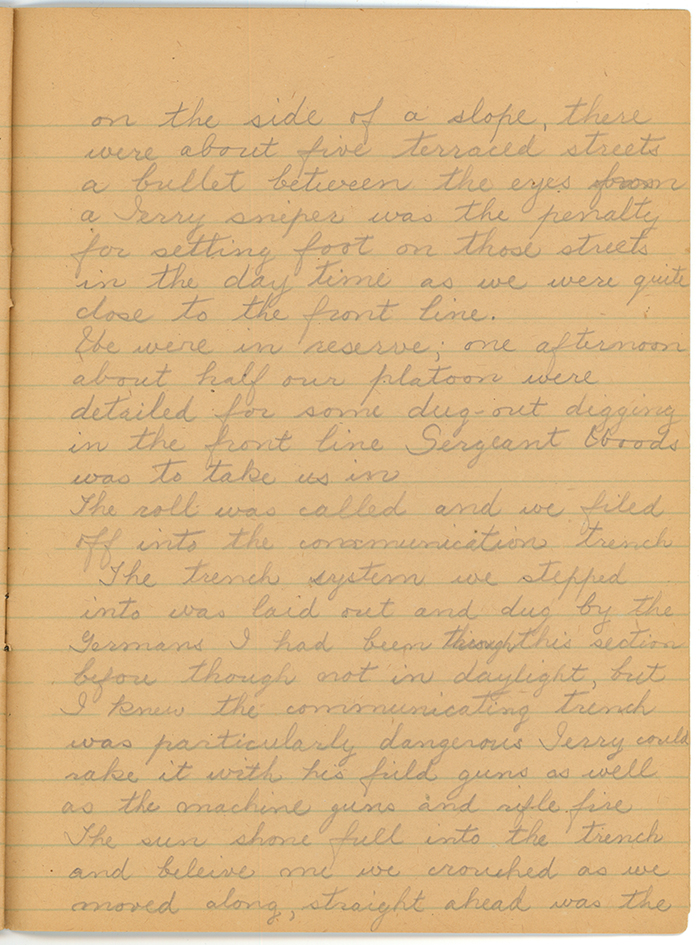 on the side of a slope, there
were about five terraced streets
a bullet between the eyes from
a Jerry sniper was the penalty
for setting foot on those streets
in the day time as we were quite
close to the front line.
We were in reserve; one afternoon
about half our platoon were
detailed for some dug-out digging
in the front line Sergeant Woods
was to take us in
The roll was called and we filed
off into the communication trench
The trench system we stepped
into was laid out and dug by the
Germans I had been through this section
before though not in daylight, but
I knew the communicating trench
was particularly dangerous Jerry could
rake it with his field guns as well
as the machine guns and rifle fire
The sun shone full into the trench
and beleive me we crouched as we
moved along, straight ahead was the